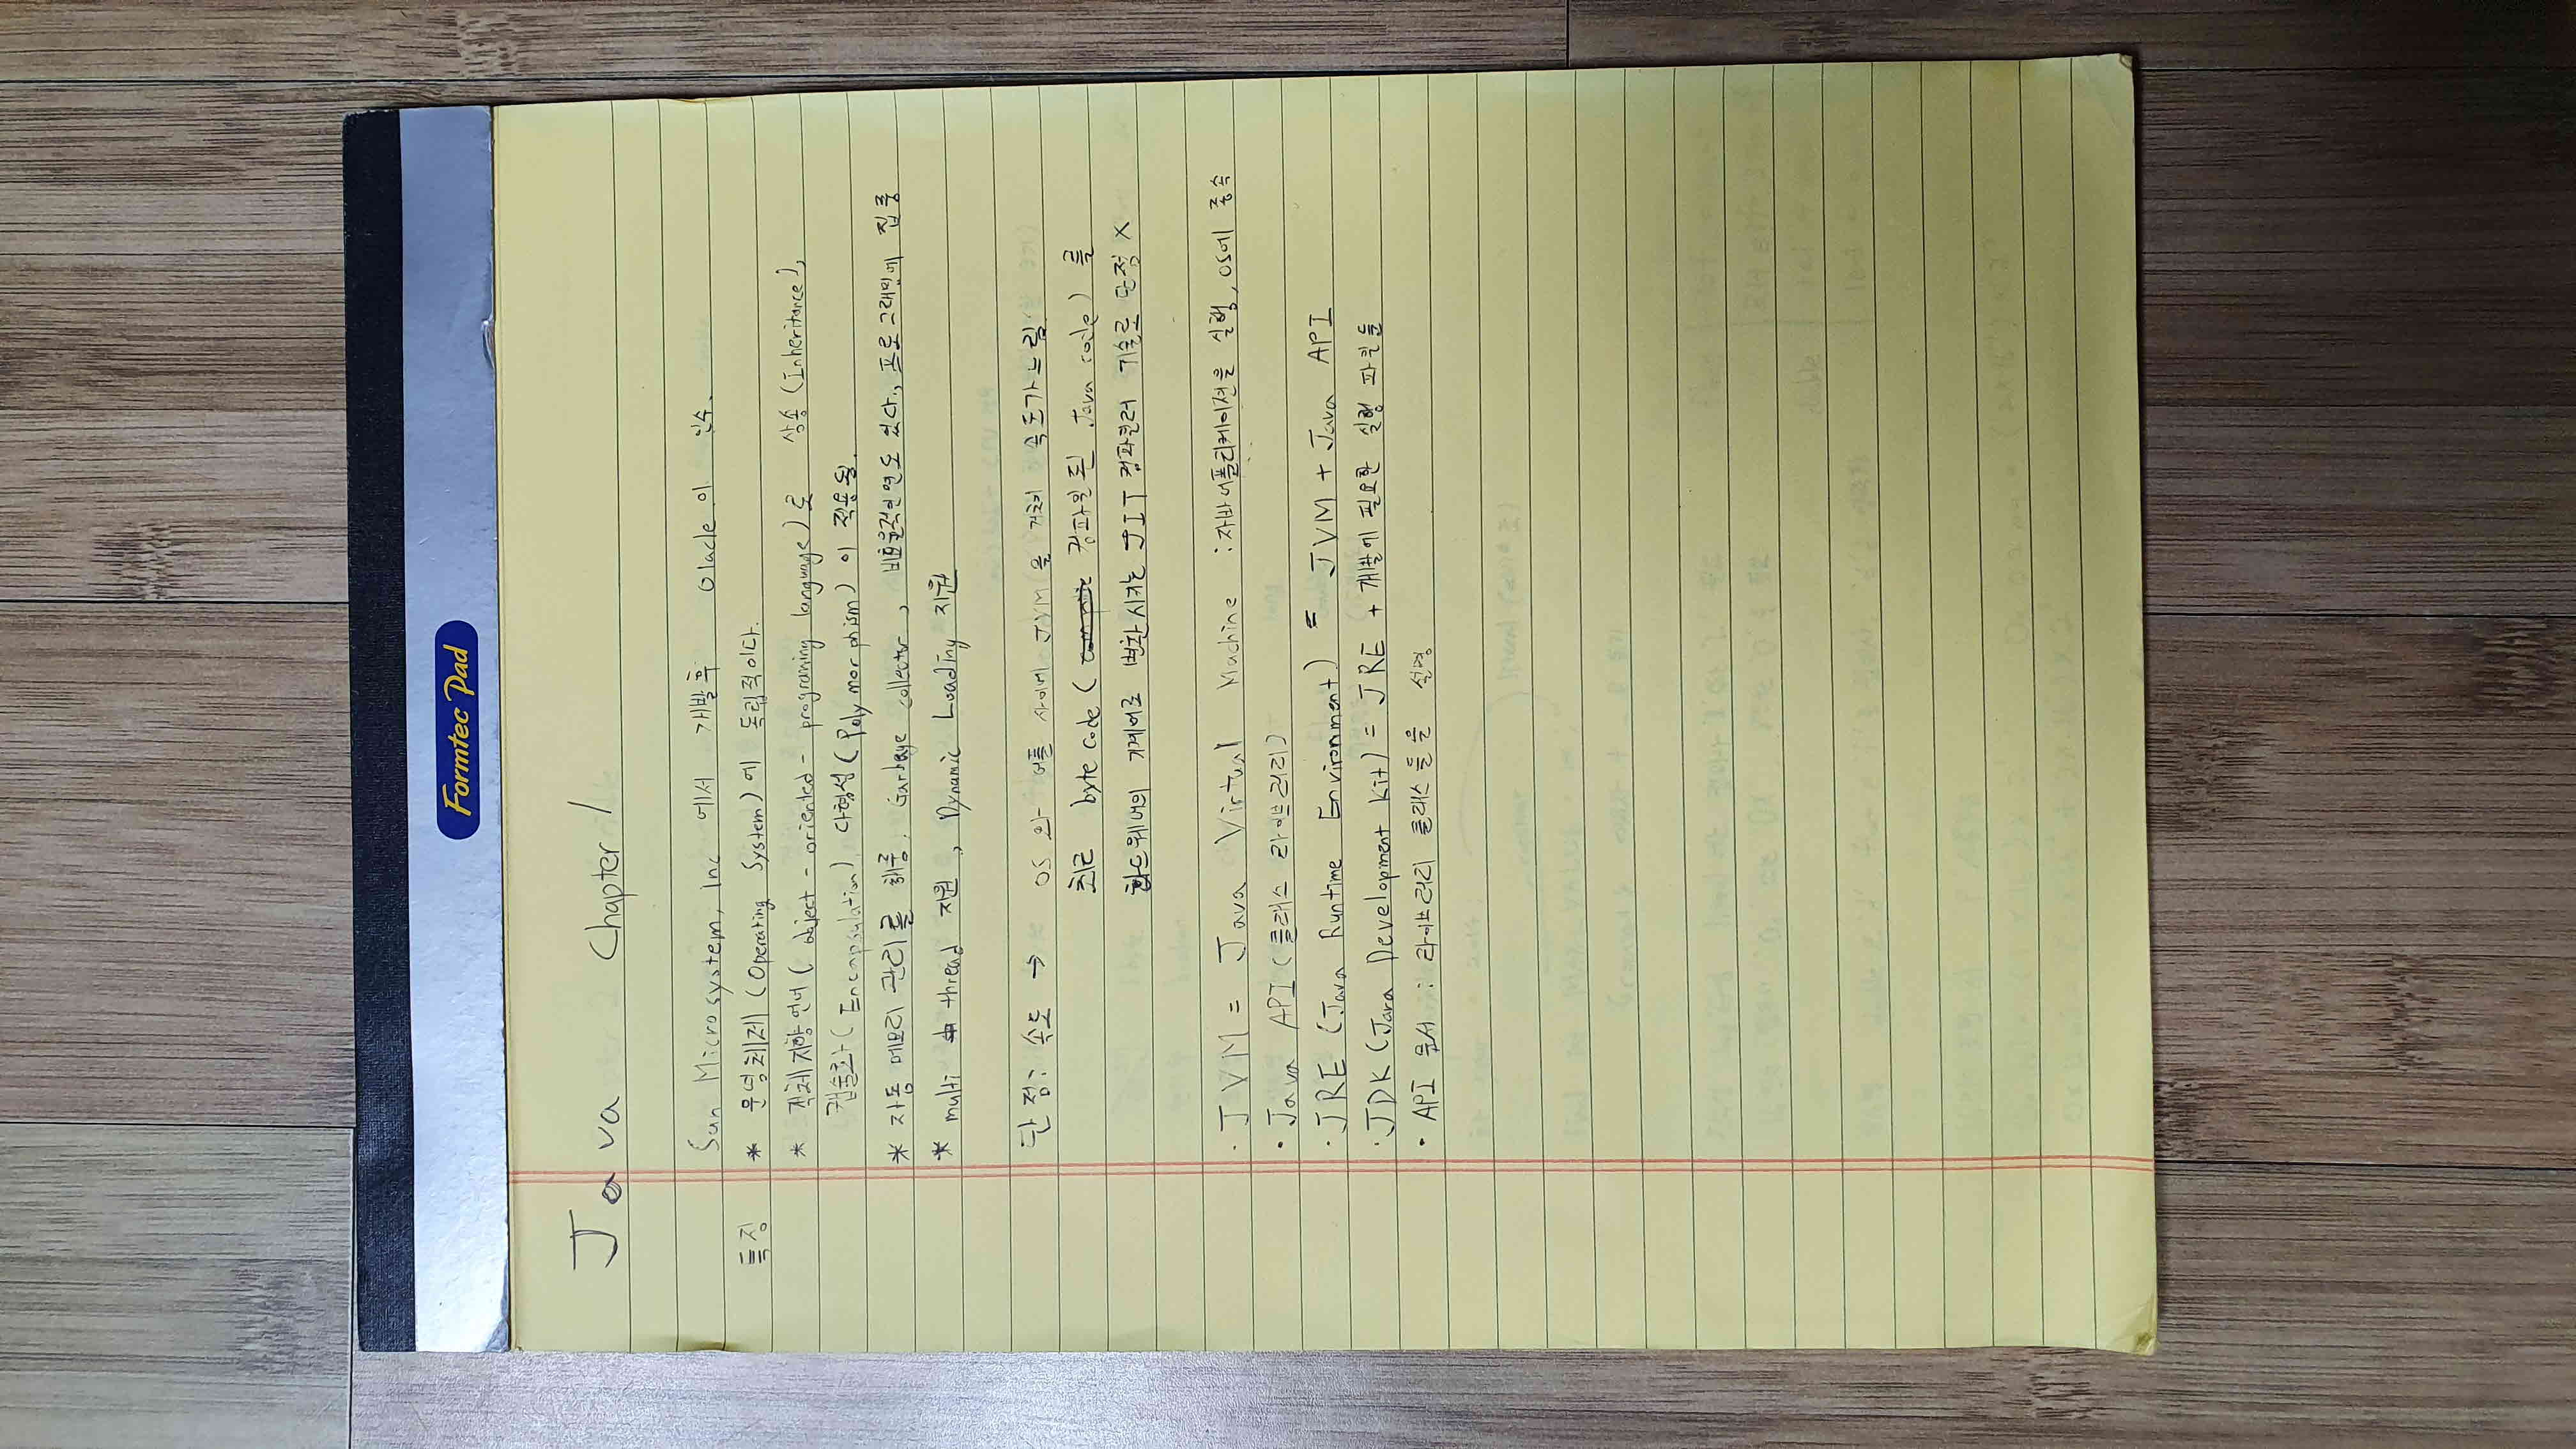 Formtec Pad
Java Chapter 1
Sun Microsystem, Inc 에서 개발후 Olacle 이 인수.
특징 * 운영체제 (Operating System) 에 독립적이다.
* 객체지향언어 ( object - oriented - programing language) 로 상속 (Inheritance),
캡슐화 ( Encapsulation), 다형성 ( Poly mor phism) 이 적용됨.
* 자동 메모리 관리를 해줌. Garbage collector, 비효율적인면도 있다., 프로그래밍에 집중
* multi thread 지원, Dynamic Loading 지원
단점: 속도 → OS 와 어플 사이에 JVM 을 거쳐 속도가느림
최근 byte code ( 컴파일된 Java code) 를
하드웨어의 기계어로 변환시키는 JIT 컴파일러 기술로 단점 X
· JVM = Java Virtual Machine : 자바어플리케이션을 실행, OS에 종속
· Java API (클래스 라이브러리)
· JRE (Java Runtime Environment) = JVM + Java API
· JDK (Java Development Kit) = JRE + 개발에 필요한 실행 파일들
· API 문서 : 라이브러리 클래스들을 설명